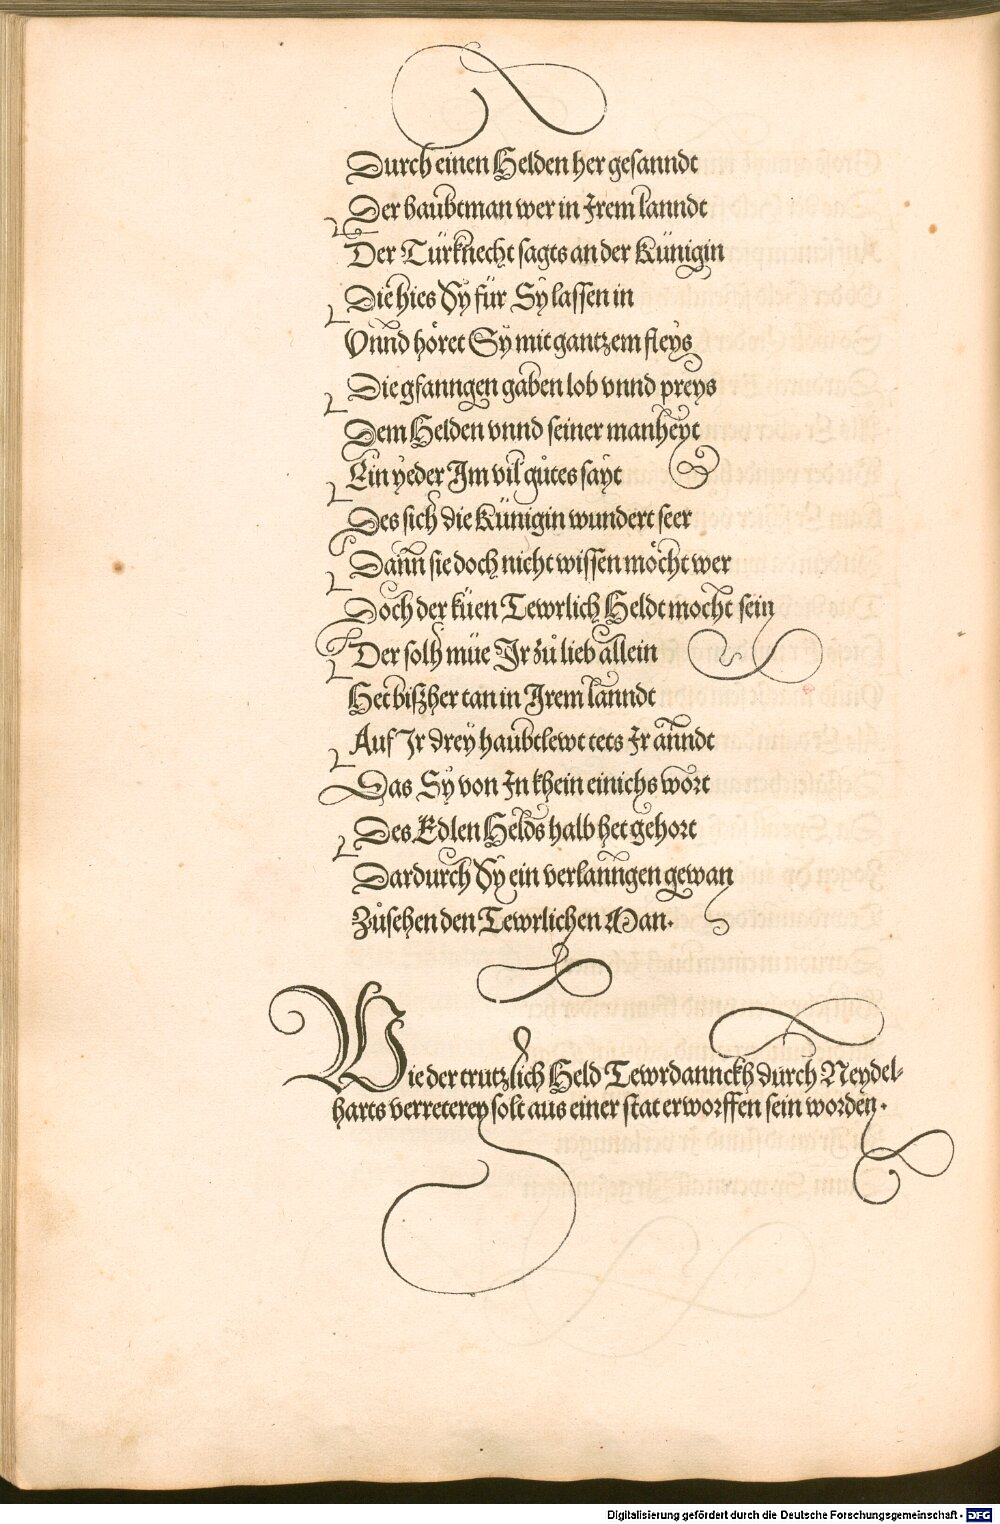 Durch einen Helden her gesanndt
Der haubtman wer in Irem lanndt
Der Türknecht sagts an der Künigin
Die hies Sÿ für Sÿ lassen in
Vnnd höret Sÿ mit gantzem fleÿs
Die gfanngen gaben lob vnnd preÿs
Dem Helden vnnd seiner manheÿt
Ein ÿeder Im vil gůtes saÿt
Des sich die Künigin wundert seer
Dann sie doch nicht wissen möcht wer
Doch der küen Tewrlich Heldt mocht sein
Der solh müe Ir zů lieb allein
Het biszher tan in Irem lanndt
Auf Ir dreÿ haubtlewt tets Ir anndt
Das Sÿ von In khein einichs wort
Des Edlen Helds halb het gehort
Dardurch Sÿ ein verlanngen gewan
Zůsehen den Tewrlichen Man.
Wie der trutzlich Held Tewrdannckh durch Neydel-
harts verreterey solt aus einer stat erworffen sein worden.
Digitalisierung gefördert durch die Deutsche Forschungsgemeinschaft - DFG